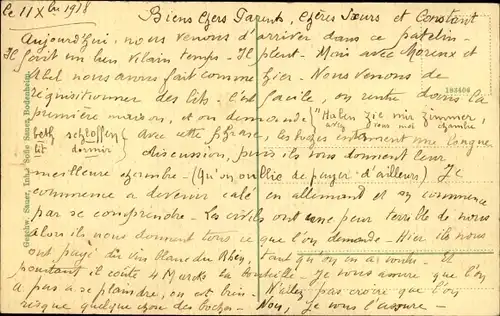 Le 11 Xbre 1918
Biens chers Parents, chères Sœurs et Constant
Aujourd'hui, nous venons d'arriver dans ce patelin -
Il fait un bien vilain temps - Il pleut - Mais avec Moreux et
Abel nous avons fait comme hier - Nous venons de
réquisitionner des lits - C'est facile, on rentre dans la
première maison, et on demande ("Haben zie mir zimmer,
avez vous moi chambre
beth schloffen (avec cette phrase, les boches entament une longue
lit dormir) discussion, puis ils vous donnent leur
meilleure chambre - (Qu'on oublie de payer d'ailleurs) Je
commence a devenir calé en allemand et on commence
par se comprendre - Les civils ont une peur terrible de nous
alors ils nous donnent tous ce que l'on demande - Hier ils nous
ont payé du vin blanc du Rhin, tant qu'on en a voulu - Et
pourtant il coûte 4 Marks la bouteille - Je vous assure que l'on
a pas a se plaindre, on est bien - N'allez pas croire que l'on
risque quelque chose des boches - Non, Je vous l'assure -
193406
Geschw. Sauer, Inha. Sofie Sauer, Bodenheim.